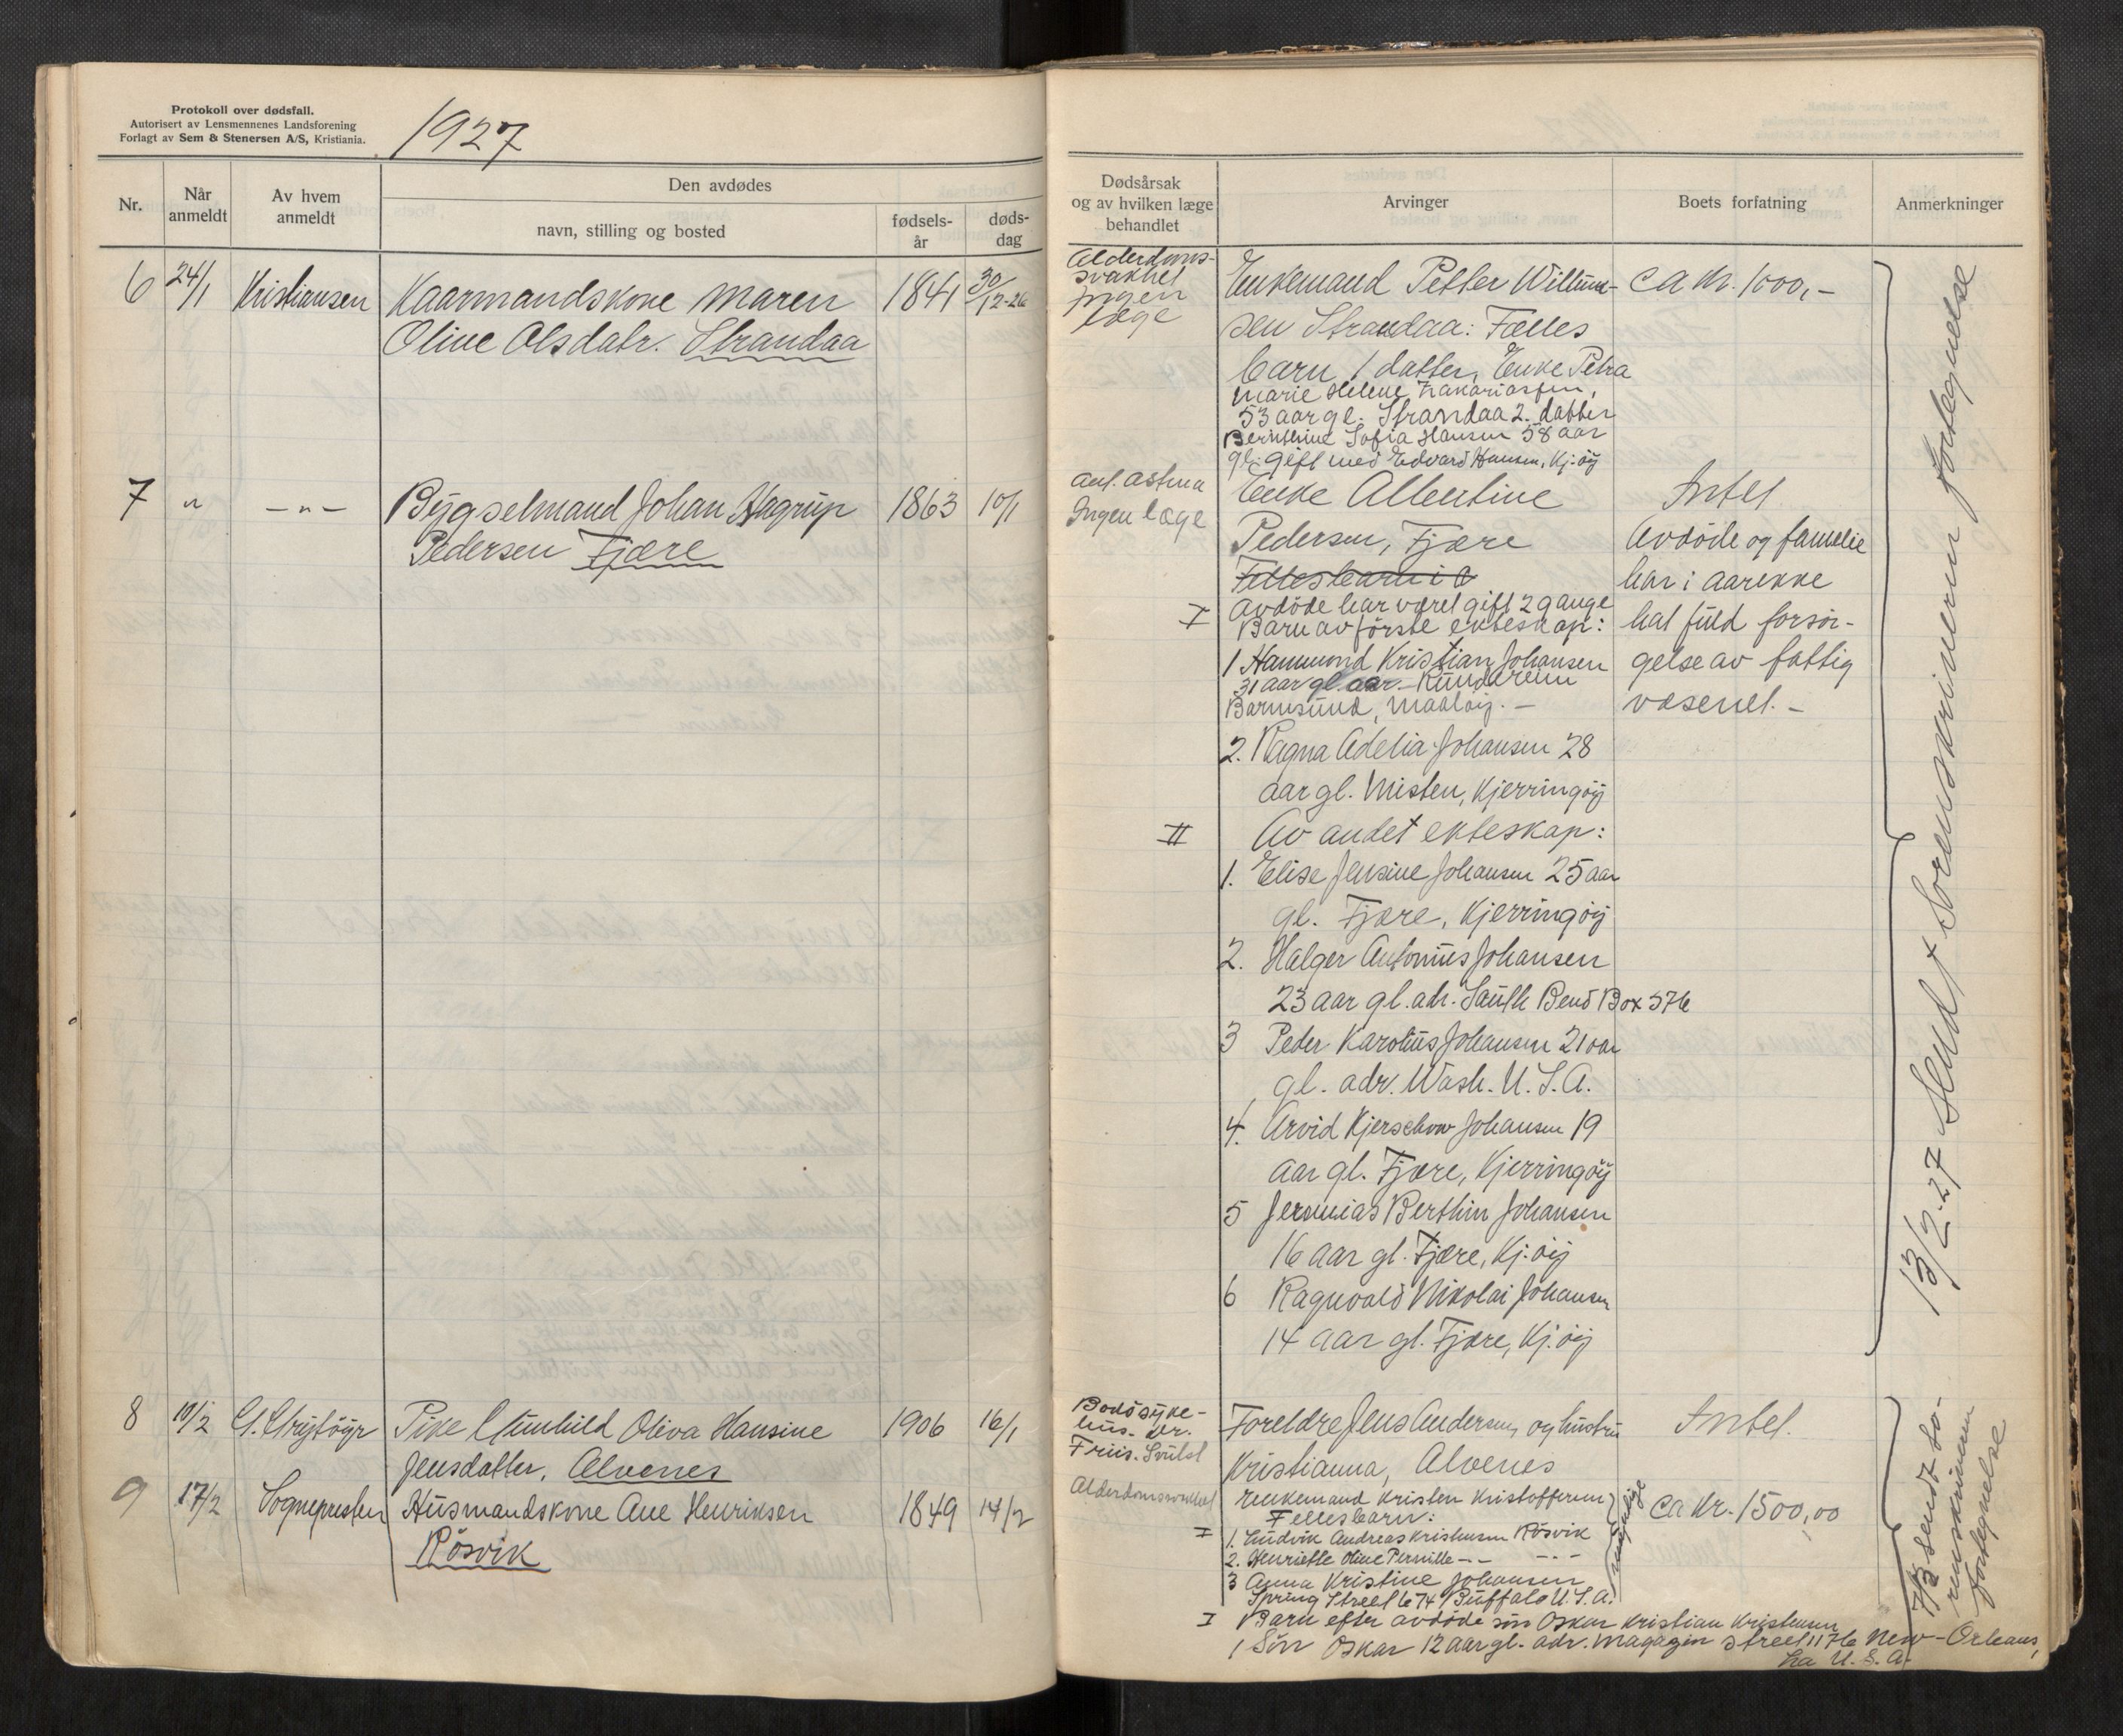 Protokoll over dødsfall.
Autorisert av Lensmennenes Landsforening
Forlagt av Sem & Stenersen A/S, Kristiania.
1927
Nr.
Når anmeldt
Av hvem anmeldt
Den avdødes
navn, stilling og bosted
fødsels-år
døds-dag
Dødsårsak
og av hvilken læge
behandlet
Arvinger
Boets forfatning
Anmerkninger
6 24/1 Kristiansen Kaarmandskone Maren 1841 30/12-26
Olive Olsdatr. Strandaa
Alderdoms-
svakhet
Ingen
læge
Enkemand Petter Willum-
sen Strandaa: Fælles
barn 1 datter, Enke Petra
Marie Helene Zakariassen,
53 aar gl. Strandaa 2. datter
Bernthine Sofia Hansen 58 aar
gl. gift med Edvard Hansen, Kj.öy
ca kr. 1000,-
7 " -"- Bygselmand Johan Hagrup 1863 10/1
Pedersen Fjære
Ant. astma
Ingen læge
Enke Albertine
Pedersen, Fjære
Fellesbarn i
I Avdöde har været gift 2 gange
Barn av förste ekteskap:
1 Hammond Kristian Johansen
31 aar gl. adr. Rundereim
Barmsund, Maaløy. -
2. Ragna Adelia Johansen 28
aar gl. Misten, Kjerringöy
II Av andet ekteskap:
1. Elise Jensine Johansen 25 aar
gl. Fjære, Kjerringöy
2. Halger Antonius Johansen
23 aar gl. adr. South Bend Box 576
3 Peder Karolius Johansen 21 aar
gl. adr. Wash. U. S. A.
4. Arvid Kjerschow Johansen 19
aar gl. Fjære, Kjerringöy
5 Jeremias Berthin Johansen
16 aar gl. Fjære, Kj.öy
6 Ragnvald Nikolai Johansen
14 aar gl. Fjære, Kj.öy
Intet.
Avdöde og familie
har i aarekke
hat fuld forsör-
gelse av fattig
væsenet. -
13/2-27 Sendt Sorenskriveren fortegnelse
8 10/2 G. Strøisöyr Pike Gunhild Oliva Hansine 1906 16/1
Jensdatter, Alvenes
Bodö syke-
hus. Dr.
Friis. Svulst
Foreldre Jens Andersen og hustru
Kristianna, Alvenes
Intet.
9 17/2 Sognepresten Husmandskone Ane Henriksen 1849 14/2
Rösvik
Alderdomsvakhet
Enkemand Kristen Kristoffersen
Fellesbarn:
I 1. Ludvik Andreas Kristensen Rösvik
2. Henriette Oline Pernille -"- -"-
3 Anna Kristine Johansen
Spring Street 674 Buffalo U. S. A.
myndige
I Barn efter avdöde sön Oskar Kristian Kristensen
1 Sön Oskar 12 aar gl. adr. Magazin street 1176 New-Orleans,
La U. S. A.
ca kr. 1500,00
7/3 sendt so-
renskriveren
fortegnelse